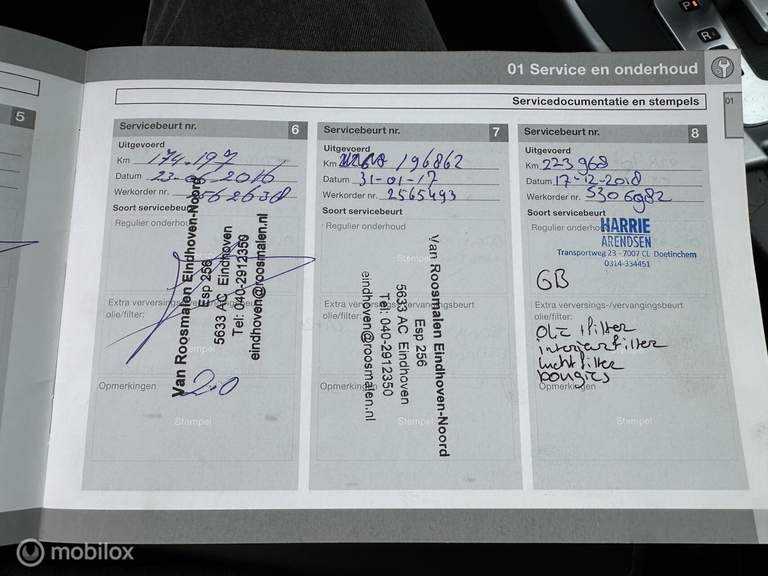 P
R
01 Service en onderhoud
Servicedocumentatie en stempels
01
5
Servicebeurt nr. 6
Uitgevoerd
Km 174.197
Datum 23-06-2016
Werkorder nr. 2562638
Soort servicebeurt
Regulier onderhoud
Stempel
Van Roosmalen Eindhoven-Noord
Esp 256
5633 AC Eindhoven
Tel: 040-2912350
eindhoven@roosmalen.nl
Extra verversings-/vervangingsbeurt
olie/filter:
2.0
Opmerkingen
Stempel
Servicebeurt nr. 7
Uitgevoerd
Km 196862
Datum 31-01-17
Werkorder nr. 2565493
Soort servicebeurt
Regulier onderhoud
Stempel
Van Roosmalen Eindhoven-Noord
Esp 256
5633 AC Eindhoven
Tel: 040-2912350
eindhoven@roosmalen.nl
Extra verversings-/vervangingsbeurt
olie/filter:
Opmerkingen
Stempel
Servicebeurt nr. 8
Uitgevoerd
Km 223968
Datum 17-12-2018
Werkorder nr. 5306982
Soort servicebeurt
Regulier onderhoud
HARRIE
ARENDSEN
Transportweg 23 - 7007 CL Doetinchem
0314-334451
GB
Extra verversings-/vervangingsbeurt
olie/filter:
olie filter
interieurfilter
luchtfilter
bougies
Opmerkingen
Stempel
mobilox